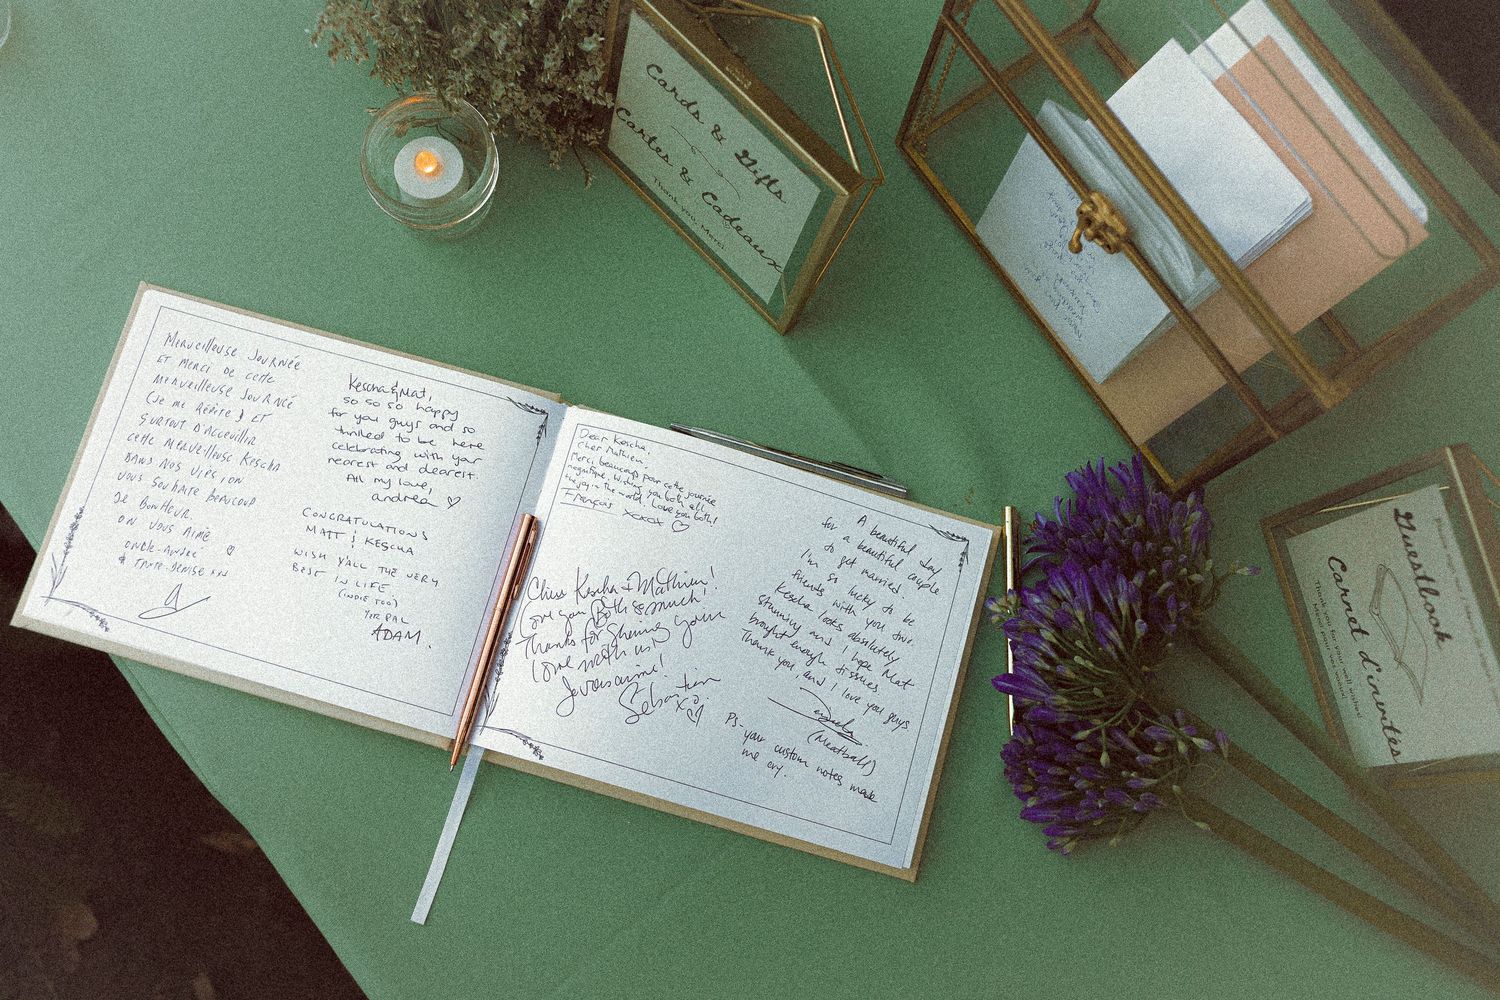 Merveilleuse Journée
et merci de cette
merveilleuse journée
(je me répète) et
surtout d'acceuillir
cette merveilleuse Kescha
dans nos vies, on
vous souhaite beaucoup
de bonheur
on vous aime
oncle-André
& tante-Denise xx
Kescha & Mat,
so so so happy
for you guys and so
thrilled to be here
celebrating with your
nearest and dearest.
All my love,
andrea ♡
CONGRATULATIONS
MATT & KESCHA
WISH Y'ALL THE VERY
BEST IN LIFE.
(INDIE TOO)
YER PAL
ADAM.
Dear Kescha,
Cher Mathieu,
Merci beaucoup pour cette journée
magnifique. Wishing you both all
the joy in the world. Love you both!
François xoxox ♡
Chers Kescha & Mathieu!
Love you Both so much!
Thanks for sharing your
love with us!
Je vous aime!
Sebastien
xo
A beautiful day
for a beautiful couple
to get married.
I'm so lucky to be
friends with you two.
Kescha looks absolutely
stunning and I hope Mat
brought enough tissues.
Thank you, and I love you guys
(Meatball)
PS- your custom notes made
me cry.
Cards & Gifts
Cartes & Cadeaux
Thank you, Merci
Guestbook
Carnet d'invités
Thank you for your well wishes
Merci pour vos vœux